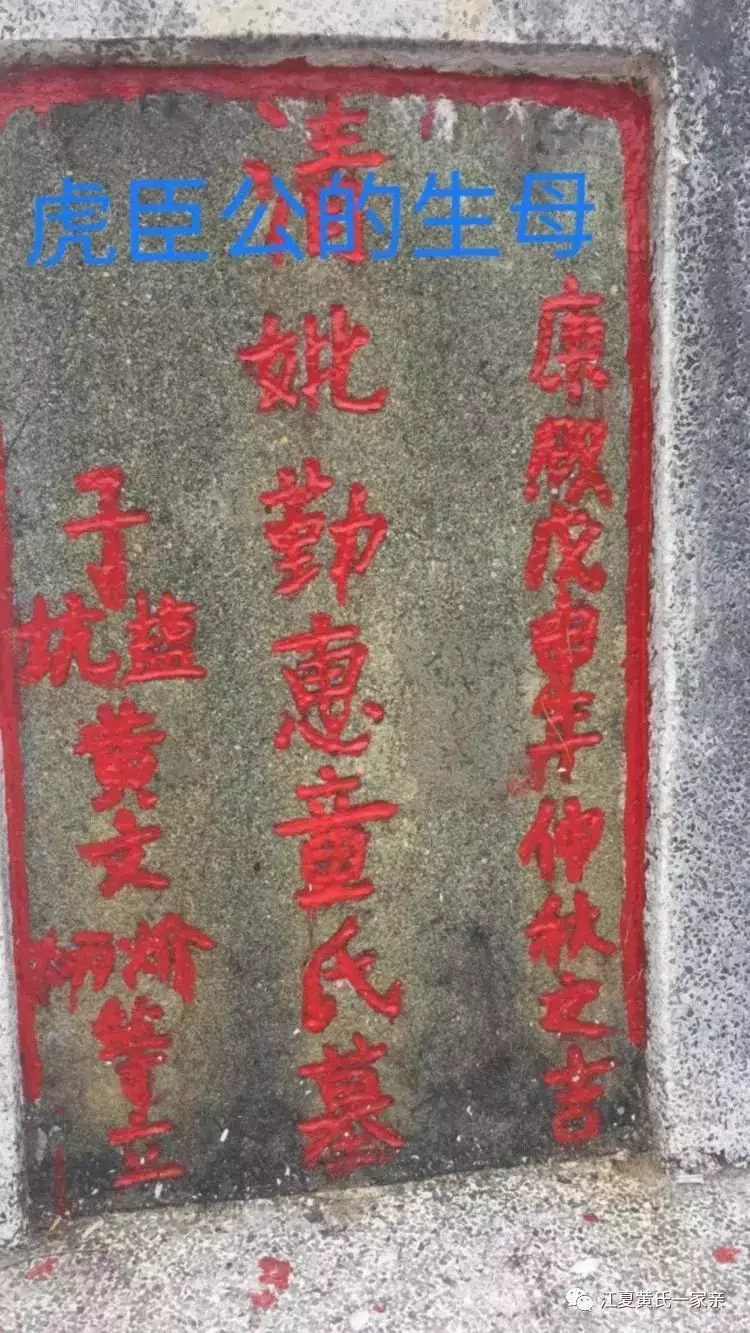 虎臣公的生母
康熙戊申年仲秋之吉
清妣勤惠童氏墓
子坑黄文炳等立
江夏黄氏一家亲